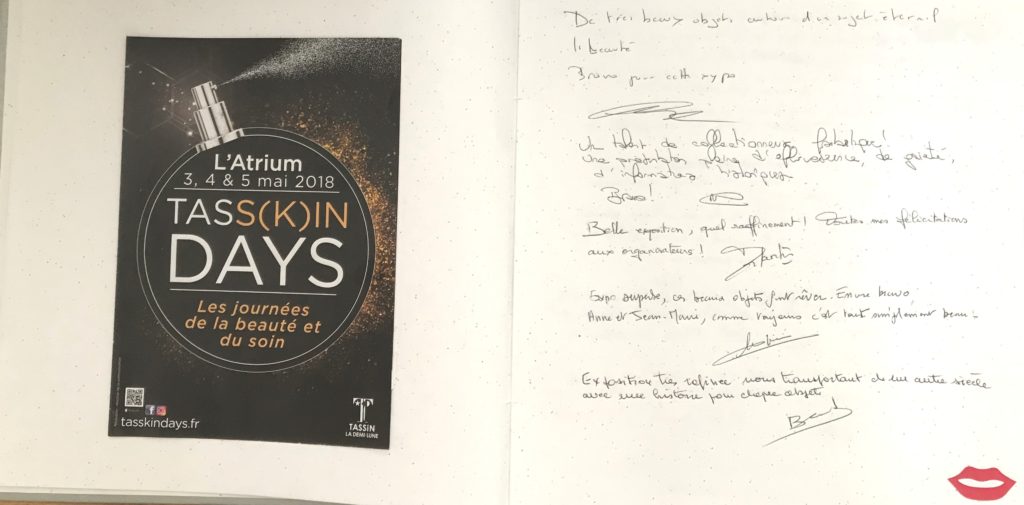 L'Atrium
3, 4 & 5 mai 2018
TASS(K)IN
DAYS
Les journées
de la beauté et
du soin
tasskindays.fr
TASSiN
LA DEMI-LUNE
De très beaux objets autour d'un sujet éternel
la beauté
Bravo pour cette expo
Un talent de collectionneur fantastique!
Une présentation pleine d'effervescence, de gaieté,
d'informations historiques
Bravo!
Belle exposition, quel raffinement! Toutes mes félicitations
aux organisateurs!
Expo superbe, ces beaux objets font rêver. Encore bravo,
Anne et Jean-Marie, comme toujours c'est tout simplement beau.
Exposition très rafinée nous transportant dans un autre siècle
avec une histoire pour chaque objet